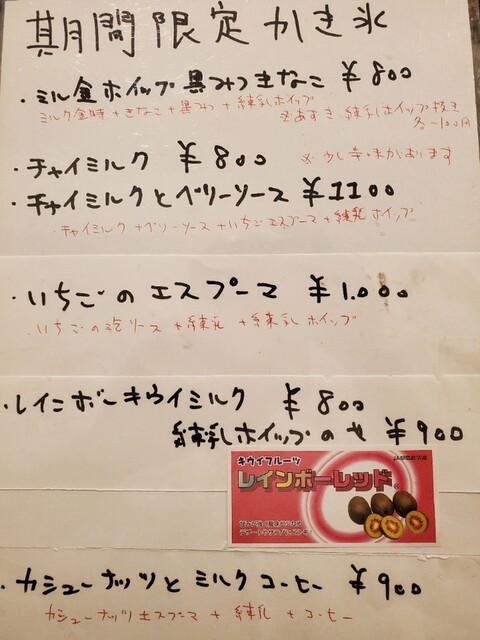 期間限定かき氷
・ミル金ホイップ黒みつきなこ ¥800
ミルク金時+きなこ+黒みつ+練乳ホイップ
※あずき、練乳ホイップ抜き
各-100円
・チャイミルク ¥800
・チャイミルクとベリーソース ¥1100
チャイミルク+ベリーソース+いちごエスプーマ+練乳ホイップ
・いちごのエスプーマ ¥1.000
・いちごの泡ソース+練乳+練乳ホイップ
・レインボーキウイミルク ¥800
練乳ホイップのせ ¥900
キウイフルーツ
レインボーレッド®
・カシューナッツとミルクコーヒー ¥900
カシューナッツエスプーマ+練乳+コーヒー